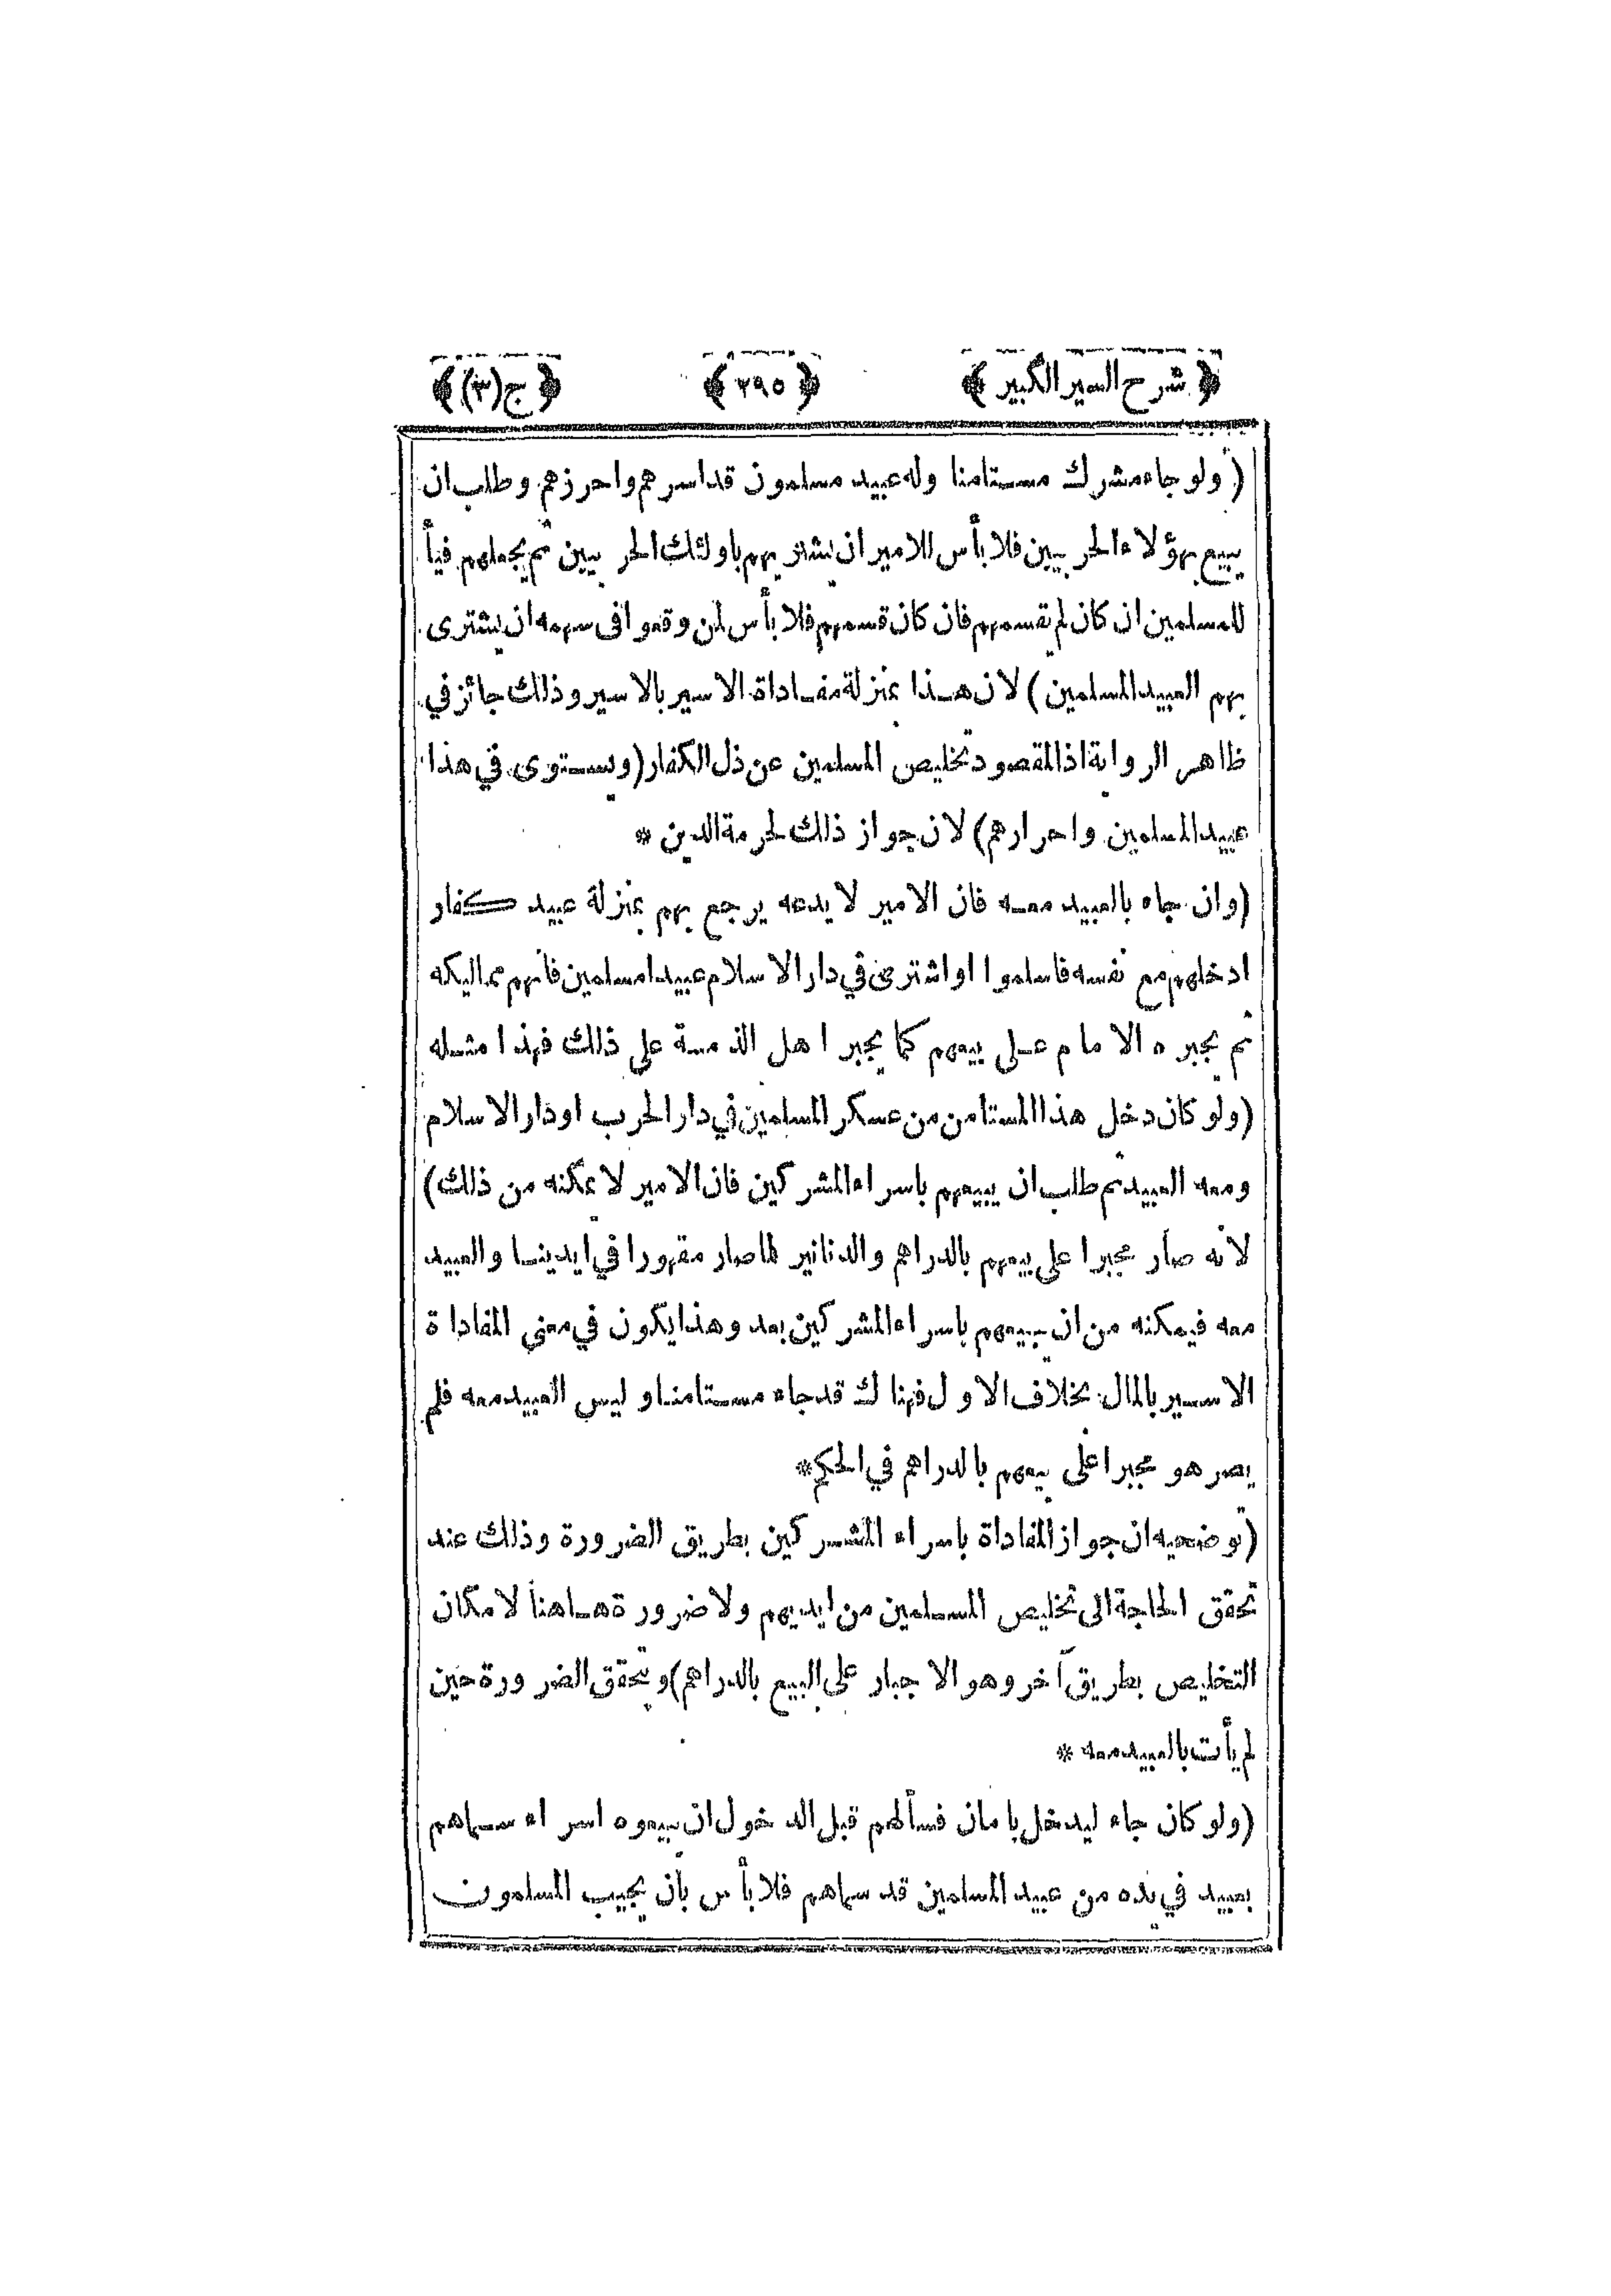 ﴿ شرح السير الكبير ﴾ ﴿ ٢٩٥ ﴾ ﴿ ج (٣) ﴾
( ولو جاء مشرك مستامنا وله عبيد مسلمون قد اسرهم واحرزهم وطلب ان
يبيع بهؤلاء الحربيين فلا بأس للامير ان يشتريهم باولئك الحربيين ثم يجعلهم فيأ
للمسلمين ان كان لم يقسمهم فان كان قسمهم فلا بأس لمن وقعوا فى سهمه ان يشترى
بهم العبيد المسلمين ) لان هذا بمنزلة مفاداة الاسير بالاسير وذلك جائز في
ظاهر الرواية اذ المقصود تخليص المسلمين عن ذل الكفار ( ويستوى في هذا
عبيد المسلمين واحرارهم ) لان جواز ذلك لحرمة الدين *
( وان جاء بالعبيد معه فان الامير لا يدعه يرجع بهم بمنزلة عبيد كفار
ادخلهم مع نفسه فاسلموا او اشترى في دار الاسلام عبيدا مسلمين فانهم مماليكه
ثم يجبره الامام على بيعهم كما يجبر اهل الذمة على ذلك فهذا مثله
( ولو كان دخل هذا المستامن من عسكر المسلمين في دار الحرب او دار الاسلام
ومعه العبيد ثم طلب ان يبيعهم باسراء المشركين فان الامير لا يمكنه من ذلك )
لانه صار مجبرا على بيعهم بالدراهم والدنانير لما صار مقهورا في ايدينا والعبيد
معه فيمكنه من ان يبيعهم باسراء المشركين بعد وهذا يكون في معنى المفاداة
الاسير بالمال بخلاف الاول فهناك قد جاء مستامنا وليس العبيد معه فلم
يصر هو مجبرا على بيعهم بالدراهم في الحكم *
( توضحيه ان جواز المفاداة باسراء المشركين بطريق الضرورة وذلك عند
تحقق الحاجة الى تخليص المسلمين من ايديهم ولا ضرورة هاهنا لامكان
التخليص بطريق آخر وهو الاجبار على البيع بالدراهم ) وتحقق الضرورة حين
لم يأت بالعبيد معه *
( ولو كان جاء ليدخل بامان فسألهم قبل الدخول ان يبيعوه اسراء سماهم
بعبيد في يده من عبيد المسلمين قد سماهم فلا بأس بأن يجيب المسلمون